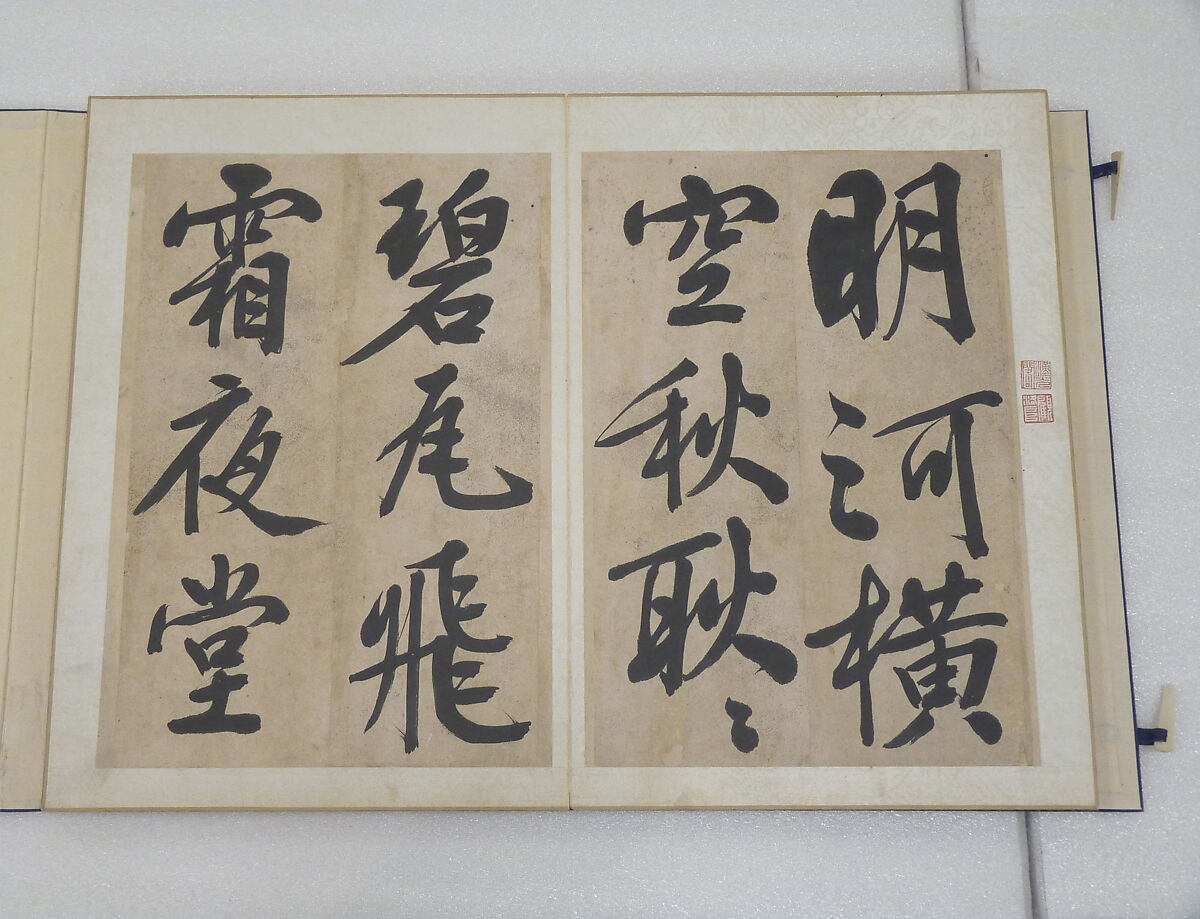 明河橫
空秋耿〻
碧瓦飛
霜夜堂